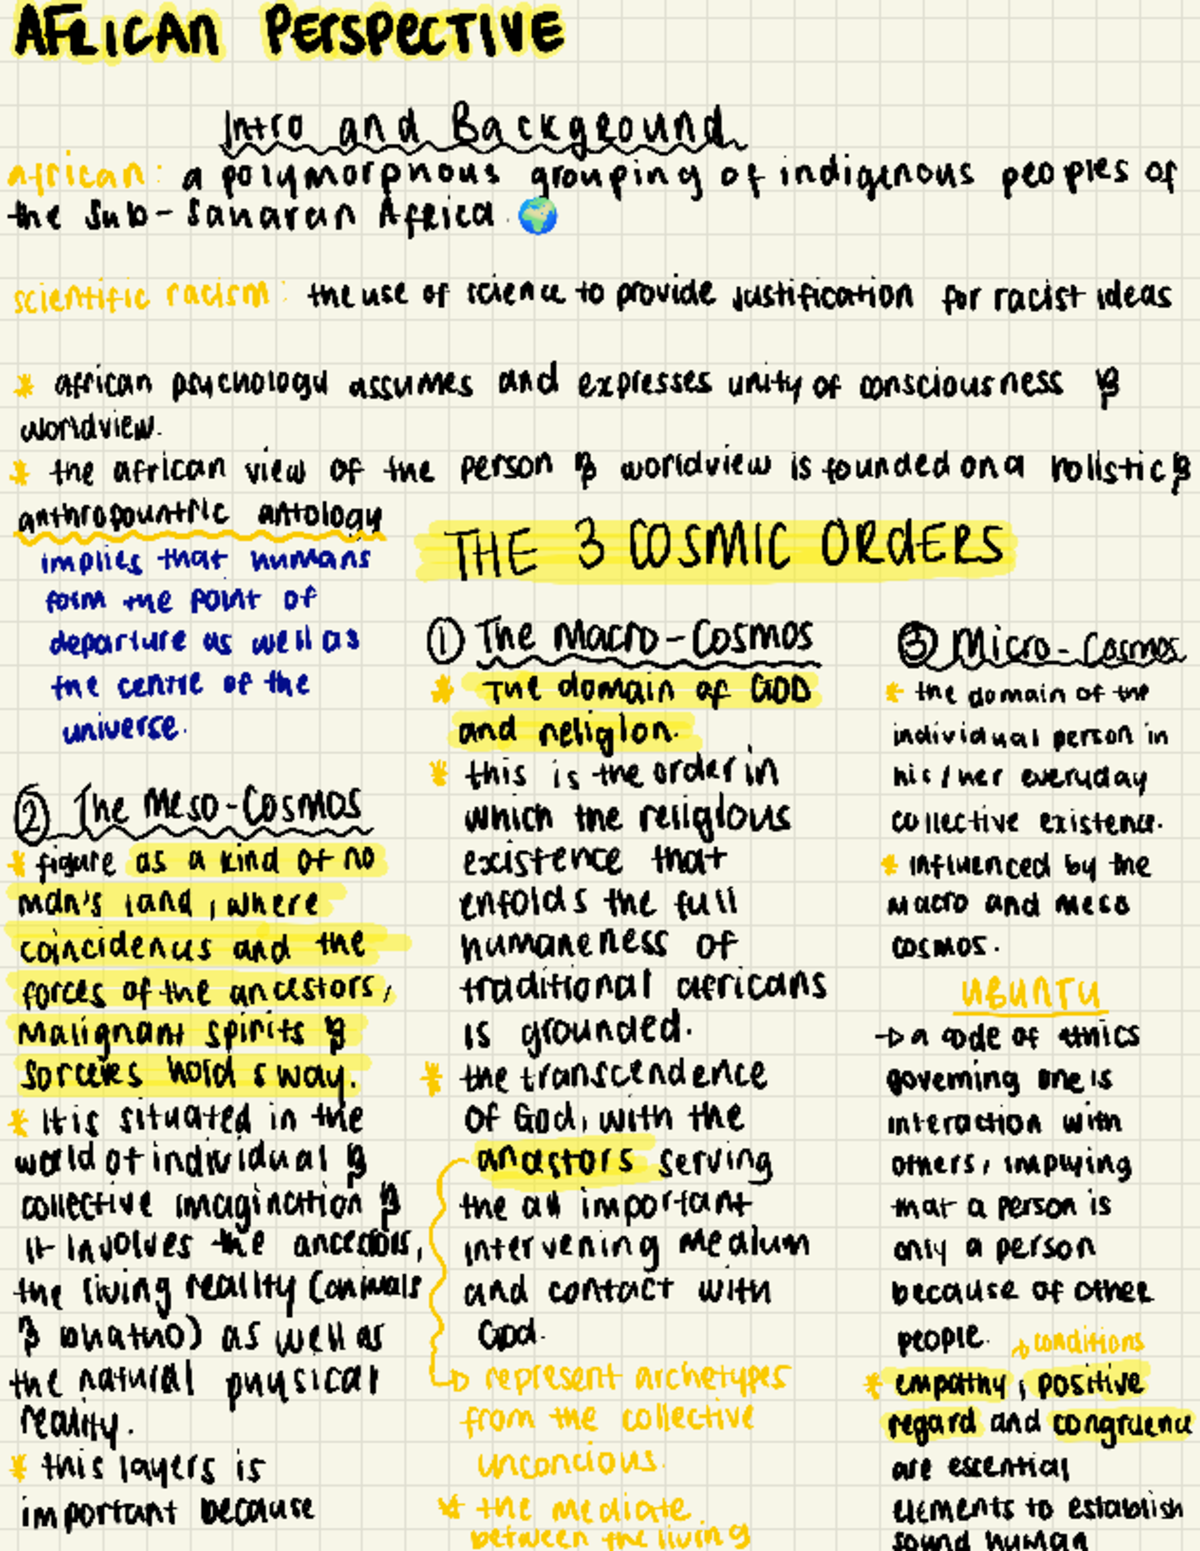 AFRICAN PERSPECTIVE
Intro and Background
african: a polymorphous grouping of indigenous peoples of
the Sub-Saharan Africa.
scientific racism: the use of science to provide justification for racist ideas
* african psychology assumes and expresses unity of consciousness &
worldview.
* the african view of the person & worldview is founded on a holistic &
anthropocentric ontology
implies that humans
form the point of
departure as well as
the centre of the
universe.
THE 3 COSMIC ORDERS
① The Macro-Cosmos
* The domain of GOD
and religion.
* this is the order in
which the religious
existence that
enfolds the full
humaneness of
traditional africans
is grounded.
* the transcendence
of God, with the
ancestors serving
the all important
intervening medium
and contact with
God.
represent archetypes
from the collective
unconcious.
* the mediate
between the living
② The Meso-Cosmos
* figure as a kind of no
man's land, where
coincidences and the
forces of the ancestors,
malignant spirits &
sorcerers hold sway.
* It is situated in the
world of individual &
collective imagination &
it involves the ancestors,
the living reality (animals
&) as well as
the natural physical
reality.
* this layers is
important because
③ Micro-Cosmos
* the domain of the
individual person in
his/her everyday
collective existence.
* influenced by the
macro and meso
cosmos.
UBUNTU
→ a code of ethics
governing one is
interaction with
others, implying
that a person is
only a person
because of other
people. → conditions
* empathy, positive
regard and congruence
are essential
elements to establish
sound human